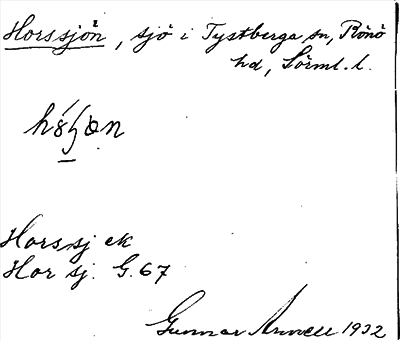 Horssjön, sjö i Tystberga sn, Rönö
hd, Sörml. l.
Horssj ek
Hor sj. G. 67
Gunnar 1932